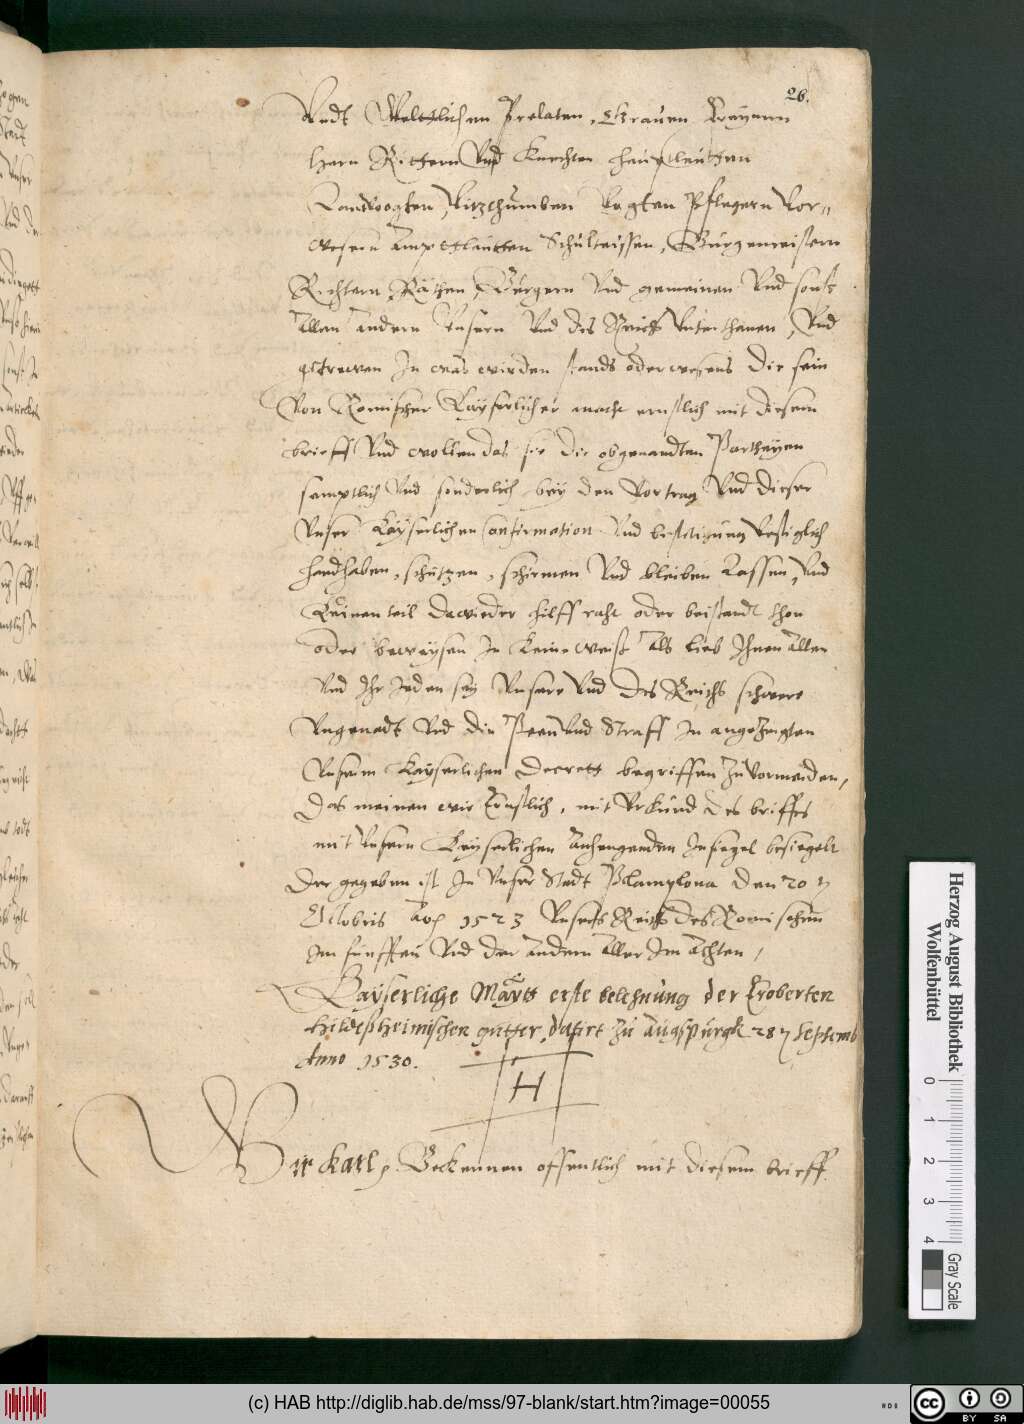 26.
Vndt Weltlichen Prelaten, Grauen Freyenn
Hern Rittern Vnd Knechten hauptleutten
Landtvogten, Vitzthumben Vogten Pflegern Vor=
wesern Ampttleutten Schulteissen, Burgemeistern
Richtern, Räthen, Burgern Vnd gemeinen Vnd sonst
Allen Andern Vnsern Vnd des Reichs Vnterthanen, Vnd
getrewen In was wirden stands oder wesens die sein
Von Romischer Kayserlicher macht ernstlich mit diesem
brieff Vnd wollen das sie die obgenandten Partheyen
samptlich Vnd sonderlich bey den Vortrag Vnd dieser
Vnser Kayserlichen Confirmation Vnd bestetigung Vestiglich
handhaben, schutzen, schirmen Vnd bleiben Lassen, Vnd
Keinen teil dawieder hilff raht oder beistandt thon
oder beweysen In keine weiß Als lieb Ihnen Allen
Vnd Ihr Jeden sey Vnsere Vnd des Reichs schwere
Vngenadt Vnd die Peen Vnd Straff In angezeigten
Vnserm Kayserlichen Decrett begriffen zuVormeiden,
Das meinen wir Ernstlich, mit Vrkund des briffes
mit Vnsern Keyserlichen Anhengenden Insegel besiegelt
Der gegeben ist In Vnser Stadt Pamplona den 20
Octobris 1523 Vnsers Reichs des Romischen
Im funfften Vnd der Andern Aller Im Achten,
Kayserliche Maytt erste belehnung der Eroberten
Hildesheimischen gutter, datirt zu Augspurgk 28 Septemb
Anno 1530.
H
Wir Karl p. Bekennen offentlich mit diesem brieff.
Herzog August Bibliothek
Wolfenbüttel
0 1 2 3 4
Gray Scale
(c) HAB http://diglib.hab.de/mss/97-blank/start.htm?image=00055
cc BY SA